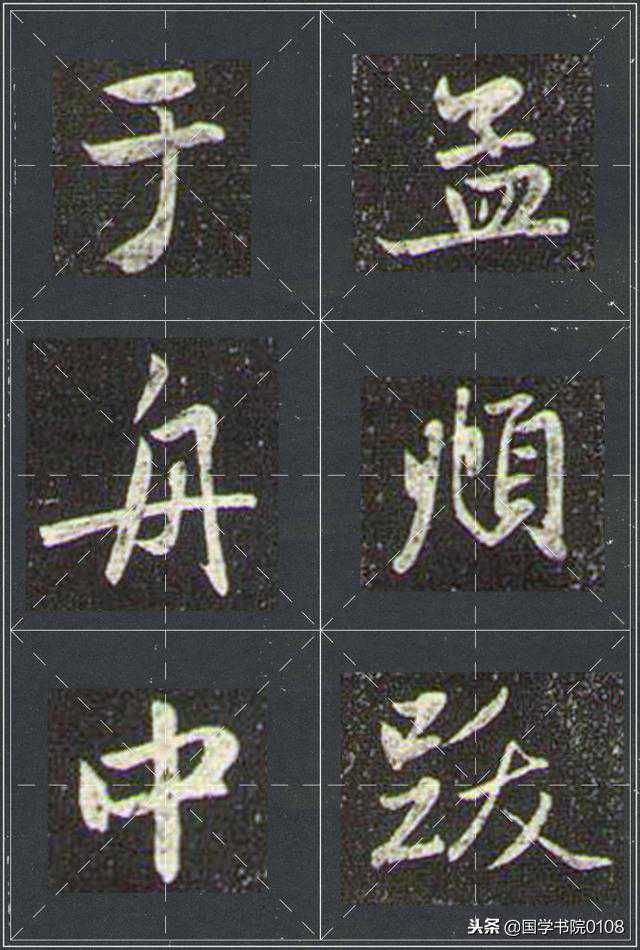 孟頫跋
于舟中
头条 @国学书院0108